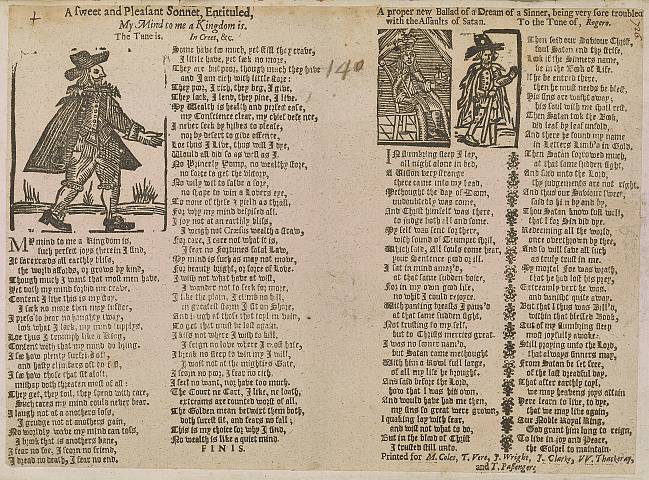 A sweet and Pleasant Sonnet, Entituled,
My Mind to me a Kingdom is.
The Tune is, In Creet, &c.
MY mind to me a Kingdom is,
such perfect joys therein I find,
It far exceeds all earthly bliss,
the world affords, or grows by kind,
Though much I want that most men have,
Yet doth my mind forbid me crave.
Content I live this is my stay,
I seek no more then may suffice,
I press to bear no haughty sway,
look what I lack, my mind supplys.
Loe thus I triumph like a King,
Content with that my mind do bring.
I see how plenty surfeits oft,
and hasty climbers oft do fall,
I see how those that sit aloft,
mishap doth threaten most of all:
They get, they toil, they spend with care,
Such cares my mind could never bear.
I laugh not at anothers loss,
I grudge not at anothers gain,
No worldly wave my mind can toss,
I brook that is anothers bane,
I fear no foe, I scorn no friend,
I dread no death, I fear no end.
Some have too much, yet still they crave,
I little have, yet seek no more,
They are but poor, though much they have
and I am rich with little store:
They poor, I rich, they beg, I give,
They lack, I lend, they pine, I live.
My Wealth is health and perfect ease,
my Conscience clear, my chief defence,
I never seek by bribes to please,
nor by desert to give offence,
Loe thus I live, thus will I dye,
Would all did so as well as I.
No Princely Pomp, no wealthy store,
no force to get the victory,
No wily wit to salve a sore,
no shape to win a Lovers eye,
To none of these I yield as thrall,
For why my mind despised all.
I joy not at an earthly bliss,
I weigh not Cræsus wealth a straw,
For care, I care not what it is,
I fear no Fortunes fatal Law,
My mind is such as may not move,
For beauty bright, or force of Love.
I wish not what have at will,
I wander not to seek for more,
I like the plain, I climb no hill,
in greatest storm I sit on Shore,
And laugh at those that toyl in vain,
To get that must be lost again.
I kiss not where I wish to kill,
I feign no love where I most hate,
I break no sleep to win my will,
I wait not at the mighties Gate,
I scorn no poor, I fear no rich,
I feel no want, nor have too much.
The Court ne Cart, I like, ne loath,
extreams are counted worst of all,
The Golden mean betwixt them both,
doth surest sit, and fears no fall;
This is my choice for why I find,
No wealth is like a quiet mind.
FINIS.
140
A proper new Ballad of a Dream of a Sinner, being very sore troubled
with the Assaults of Satan. To the Tune of, Rogero.
IN slumbring sleep I lay,
all night alone in bed,
A Vision very strange
there came into my head,
Methought the day of Doom,
undoubtedly was come,
And Christ himself was there,
to judge both all and some.
My self was sent for there,
with sound of Trumpet shril,
Which said, All souls come hear,
your Sentence good or ill.
I sat in mind amaz'd,
at that same sudden voice,
For in my own good life,
no whit I could rejoyce.
With panting breast I paus'd
at that same sudden sight,
Not trusting to my self,
but to Christs mercies great.
I was no sooner nam'd,
but Satan came methought
With him a Rowl full large,
of all my life he brought.
And said before the Lord,
how that I was his own.
And would have had me then,
my sins so great were grown,
I quaking lay with fear,
and wist not what to do,
But in the blood of Christ
I trusted still unto.
Then said our Saviour Christ,
foul Satan end thy strife,
Look if the Sinners name,
be in the Book of Life.
If he be entred there,
then he must needs be blest,
His sins are washt away;
his soul with me shall rest.
Then Satan took the Book,
did leaf by leaf unfold,
And there he found my name
in Letters limb'd in Gold.
Then Satan sorrowed much,
at that same sudden sight,
And said unto the Lord,
thy judgements are not right.
And thus our Saviour sweet,
said to him by and by,
Thou Satan know'st full well,
that I for Sin did dye.
Redeeming all the world,
once overthrown by thee,
And so will save all such
as truly trust in me.
My mortal Foe was wrath,
that he had lost his prey,
Extreamly vext he was,
and vanisht quite away.
But that I thus was bless'd,
within that blessed Book,
Out of my slumbring sleep
most joyfully awoke:
Still praying unto the Lord,
that always sinners may,
From Satan be set free,
at the last dreadful day.
That after earthly toyl,
we may heavens joys attain
Here learn to live, to dye,
that we may live again;
Our Noble Royal King,
God grant him long to reign,
To live in joy and Peace,
the Gospel to maintain.
Printed for M. Coles, T. Vere, J. Wright, J. Clarke, W. Thackeray,
and T. Passenger.